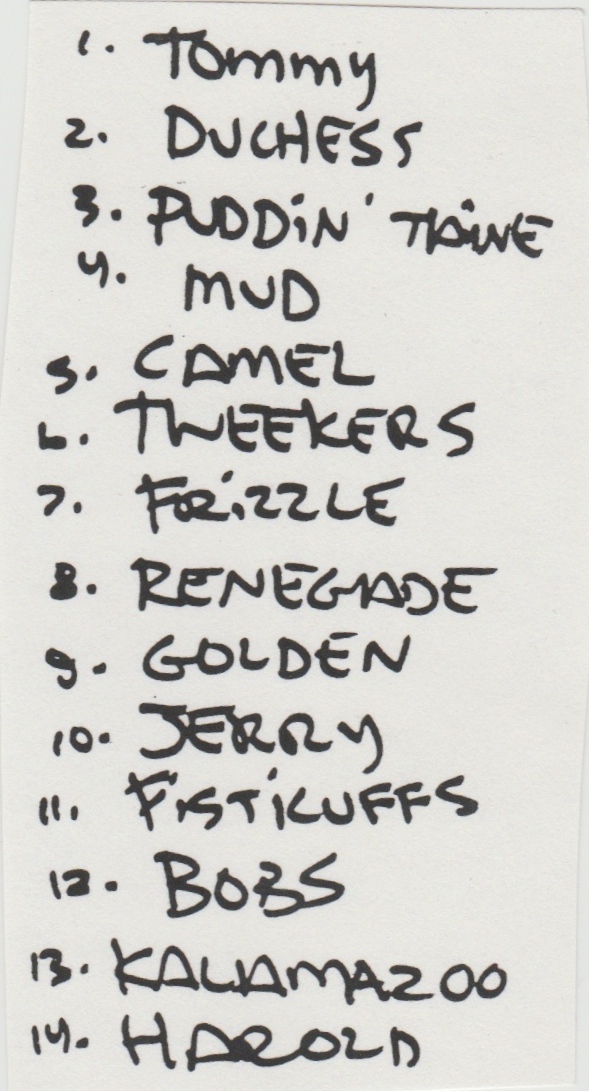 1. Tommy
2. DUCHESS
3. PUDDiN' TAiNE
4. MUD
5. CAMEL
6. TWEEKERS
7. FRiZZLE
8. RENEGADE
9. GOLDEN
10. JERRY
11. FiSTiCUFFS
12. BOBS
13. KALAMAZOO
14. HAROLD